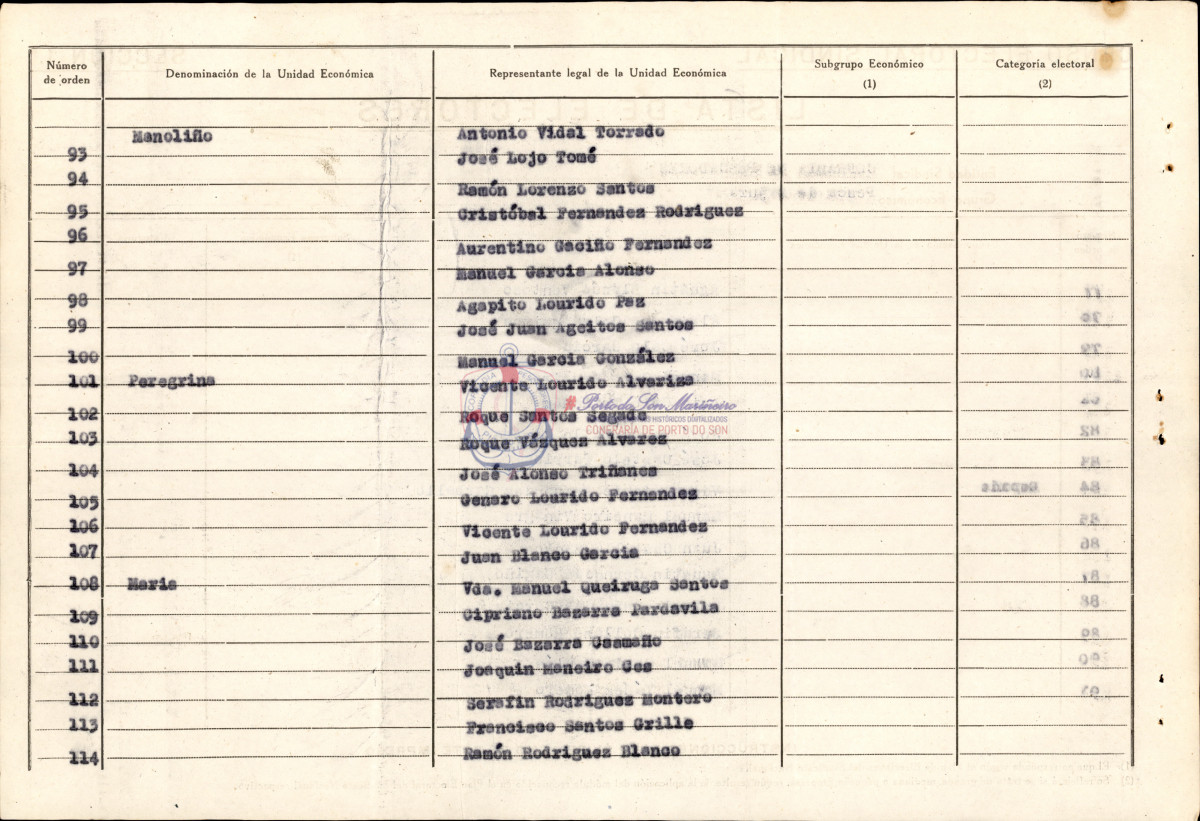 Número de orden Denominación de la Unidad Económica Representante legal de la Unidad Económica Subgrupo Económico (1) Categoria electoral (2)
Manoliño Antonio Vidal Torrado
93 José Lojo Tomé
94 Ramón Lorenzo Santos
95 Cristóbal Fernandez Rodriguez
96 Aurentino Gaciño Fernandez
97 Manuel Garcia Alonso
98 Agapito Lourido Paz
99 José Juan Ageitos Santos
100 Manuel Garcia González
101 Peregrina Vicente Lourido Alvariza
102 Roque Santos Segade
103 Roque Vázquez Alvarez
104 José Alonso Triñanes
105 Genaro Lourido Fernandez
106 Vicente Lourido Fernandez
107 Juan Blanco Garcia
108 Maria Vda. Manuel Queiruga Santos
109 Cipriano Bazarra Pardavila
110 José Bazarra Caamaño
111 Joaquin Maneiro Ces
112 Serafin Rodriguez Montero
113 Francisco Santos Grille
114 Ramón Rodriguez Blanco
# Porto do Son Mariñeiro
HISTÓRICOS DIXITALIZADOS
CONFRARÍA DE PORTO DO SON